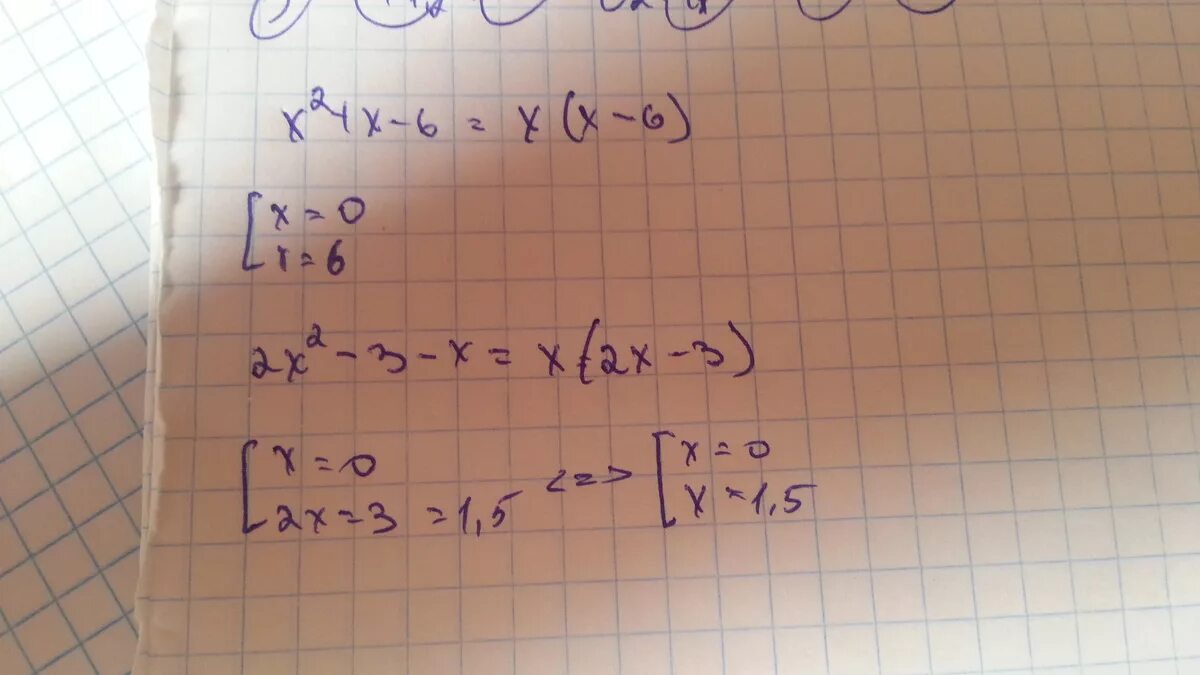 x²+x-6 = x(x-6)
[ x=0
x=6
2x²-3-x = x(2x-3)
[ x=0 <=> [ x=0
2x=3 =1,5 x=1,5